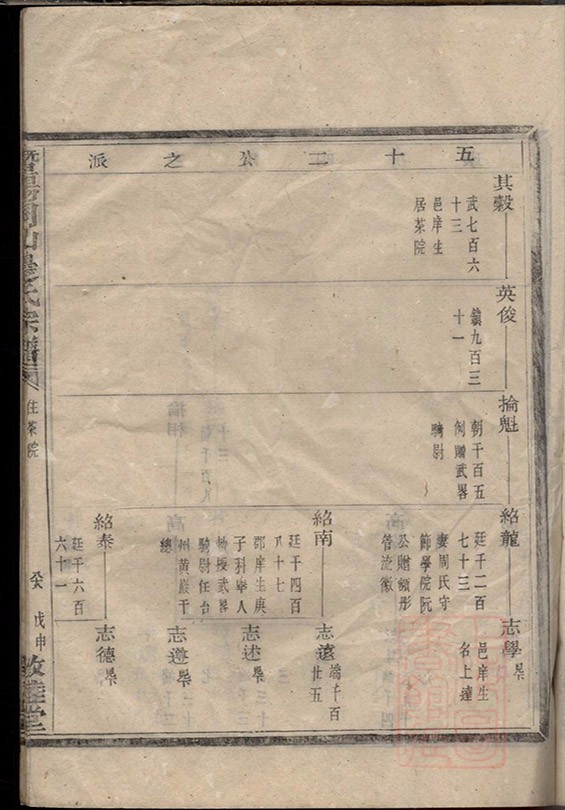 五十二公之派
其穀
武七百六
十三
邑庠生
居茶院
英俊
鎮九百三
十一
掄魁
朝千百五
例贈武畧
騎尉
紹龍
廷千二百
七十三
妻周氏守
節學院阮
公贈額彤
管流徽
志學
邑庠生
名上達
紹南
廷千四百
八十七
郡庠生庚
子科舉人
騎尉任台
州黃巖千
總
志遠
端千百
廿五
志述
志遵
紹泰
廷千六百
六十一
志德
氏宗譜
住茶院
戊申